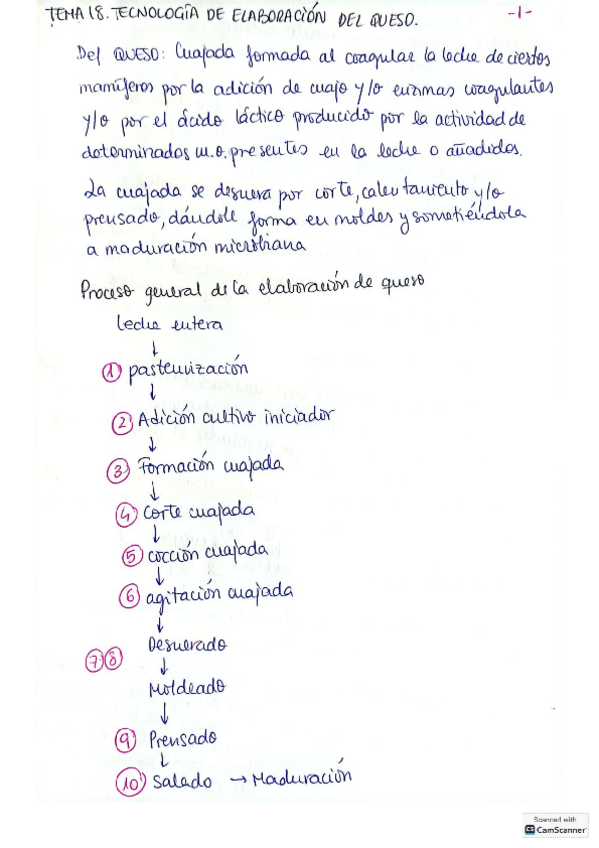 TEMA 18. TECNOLOGÍA DE ELABORACIÓN DEL QUESO. -1-
Def QUESO: Cuajada formada al coagular la leche de ciertos
mamíferos por la adición de cuajo y/o enzimas coagulantes
y/o por el ácido láctico producido por la actividad de
determinados m.o. presentes en la leche o añadidos.
La cuajada se desuera por corte, calentamiento y/o
prensado, dándole forma en moldes y sometiéndola
a maduración microbiana
Proceso general de la elaboración de queso
leche entera
↓
① pasteurización
↓
② Adición cultivo iniciador
↓
③ Formación cuajada
↓
④ Corte cuajada
↓
⑤ cocción cuajada
↓
⑥ agitación cuajada
↓
Desuerado
⑦ ⑧ ↓
Moldeado
↓
⑨ Prensado
↓
⑩ Salado → Maduración
Scanned with
CS CamScanner